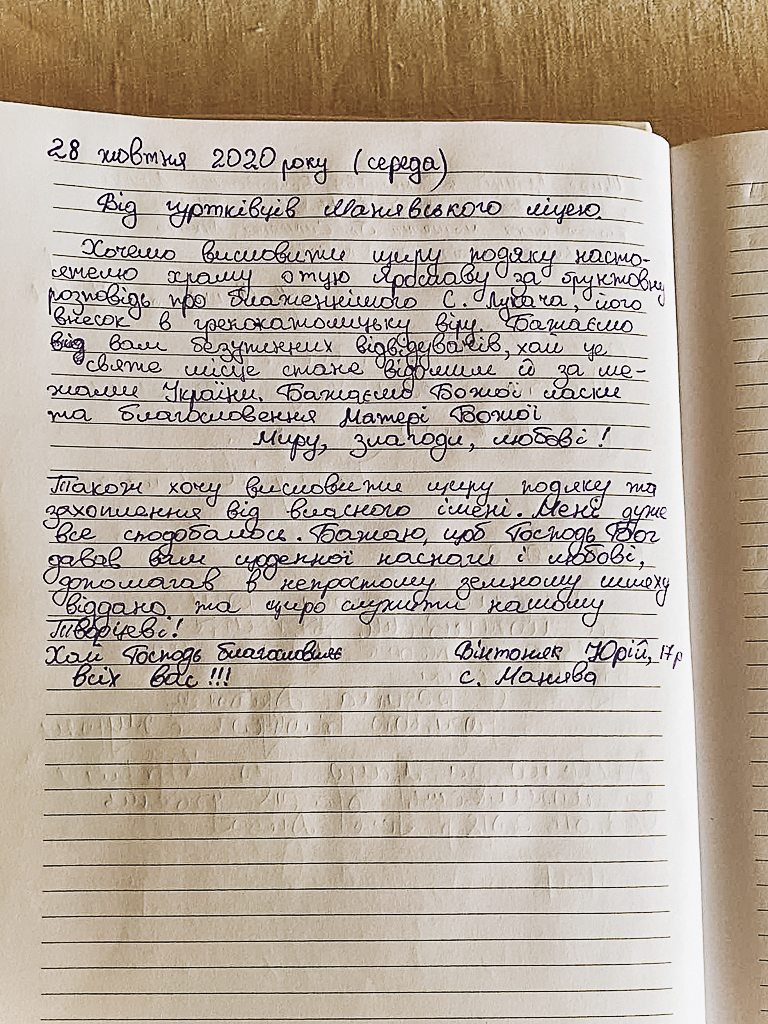 28 жовтня 2020 року (середа)
Від гуртківців Манявського ліцею.
Хочемо висловити щиру подяку насто-
ятелю храму отцю Ярославу за ґрунтовну
розповідь про блаженнішого С. Лукача, його
внесок в грекокатолицьку віру. Бажаємо
від вам безупинних відвідувачів, хай це
святе місце стане відомим й за ме-
жами України. Бажаємо Божої ласки
та благословення Матері Божої
Миру, злагоди, любові!
Також хочу висловити щиру подяку та
захоплення від власного імені. Мені дуже
все сподобалось. Бажаю, щоб Господь Бог
давав вам щоденної наснаги і любові,
допомагав в непростому земному шляху
віддано та щиро служити нашому
Творцеві!
Хай Господь благословляє Вінтоняк Юрій, 17р
всіх вас!!! с. Манява